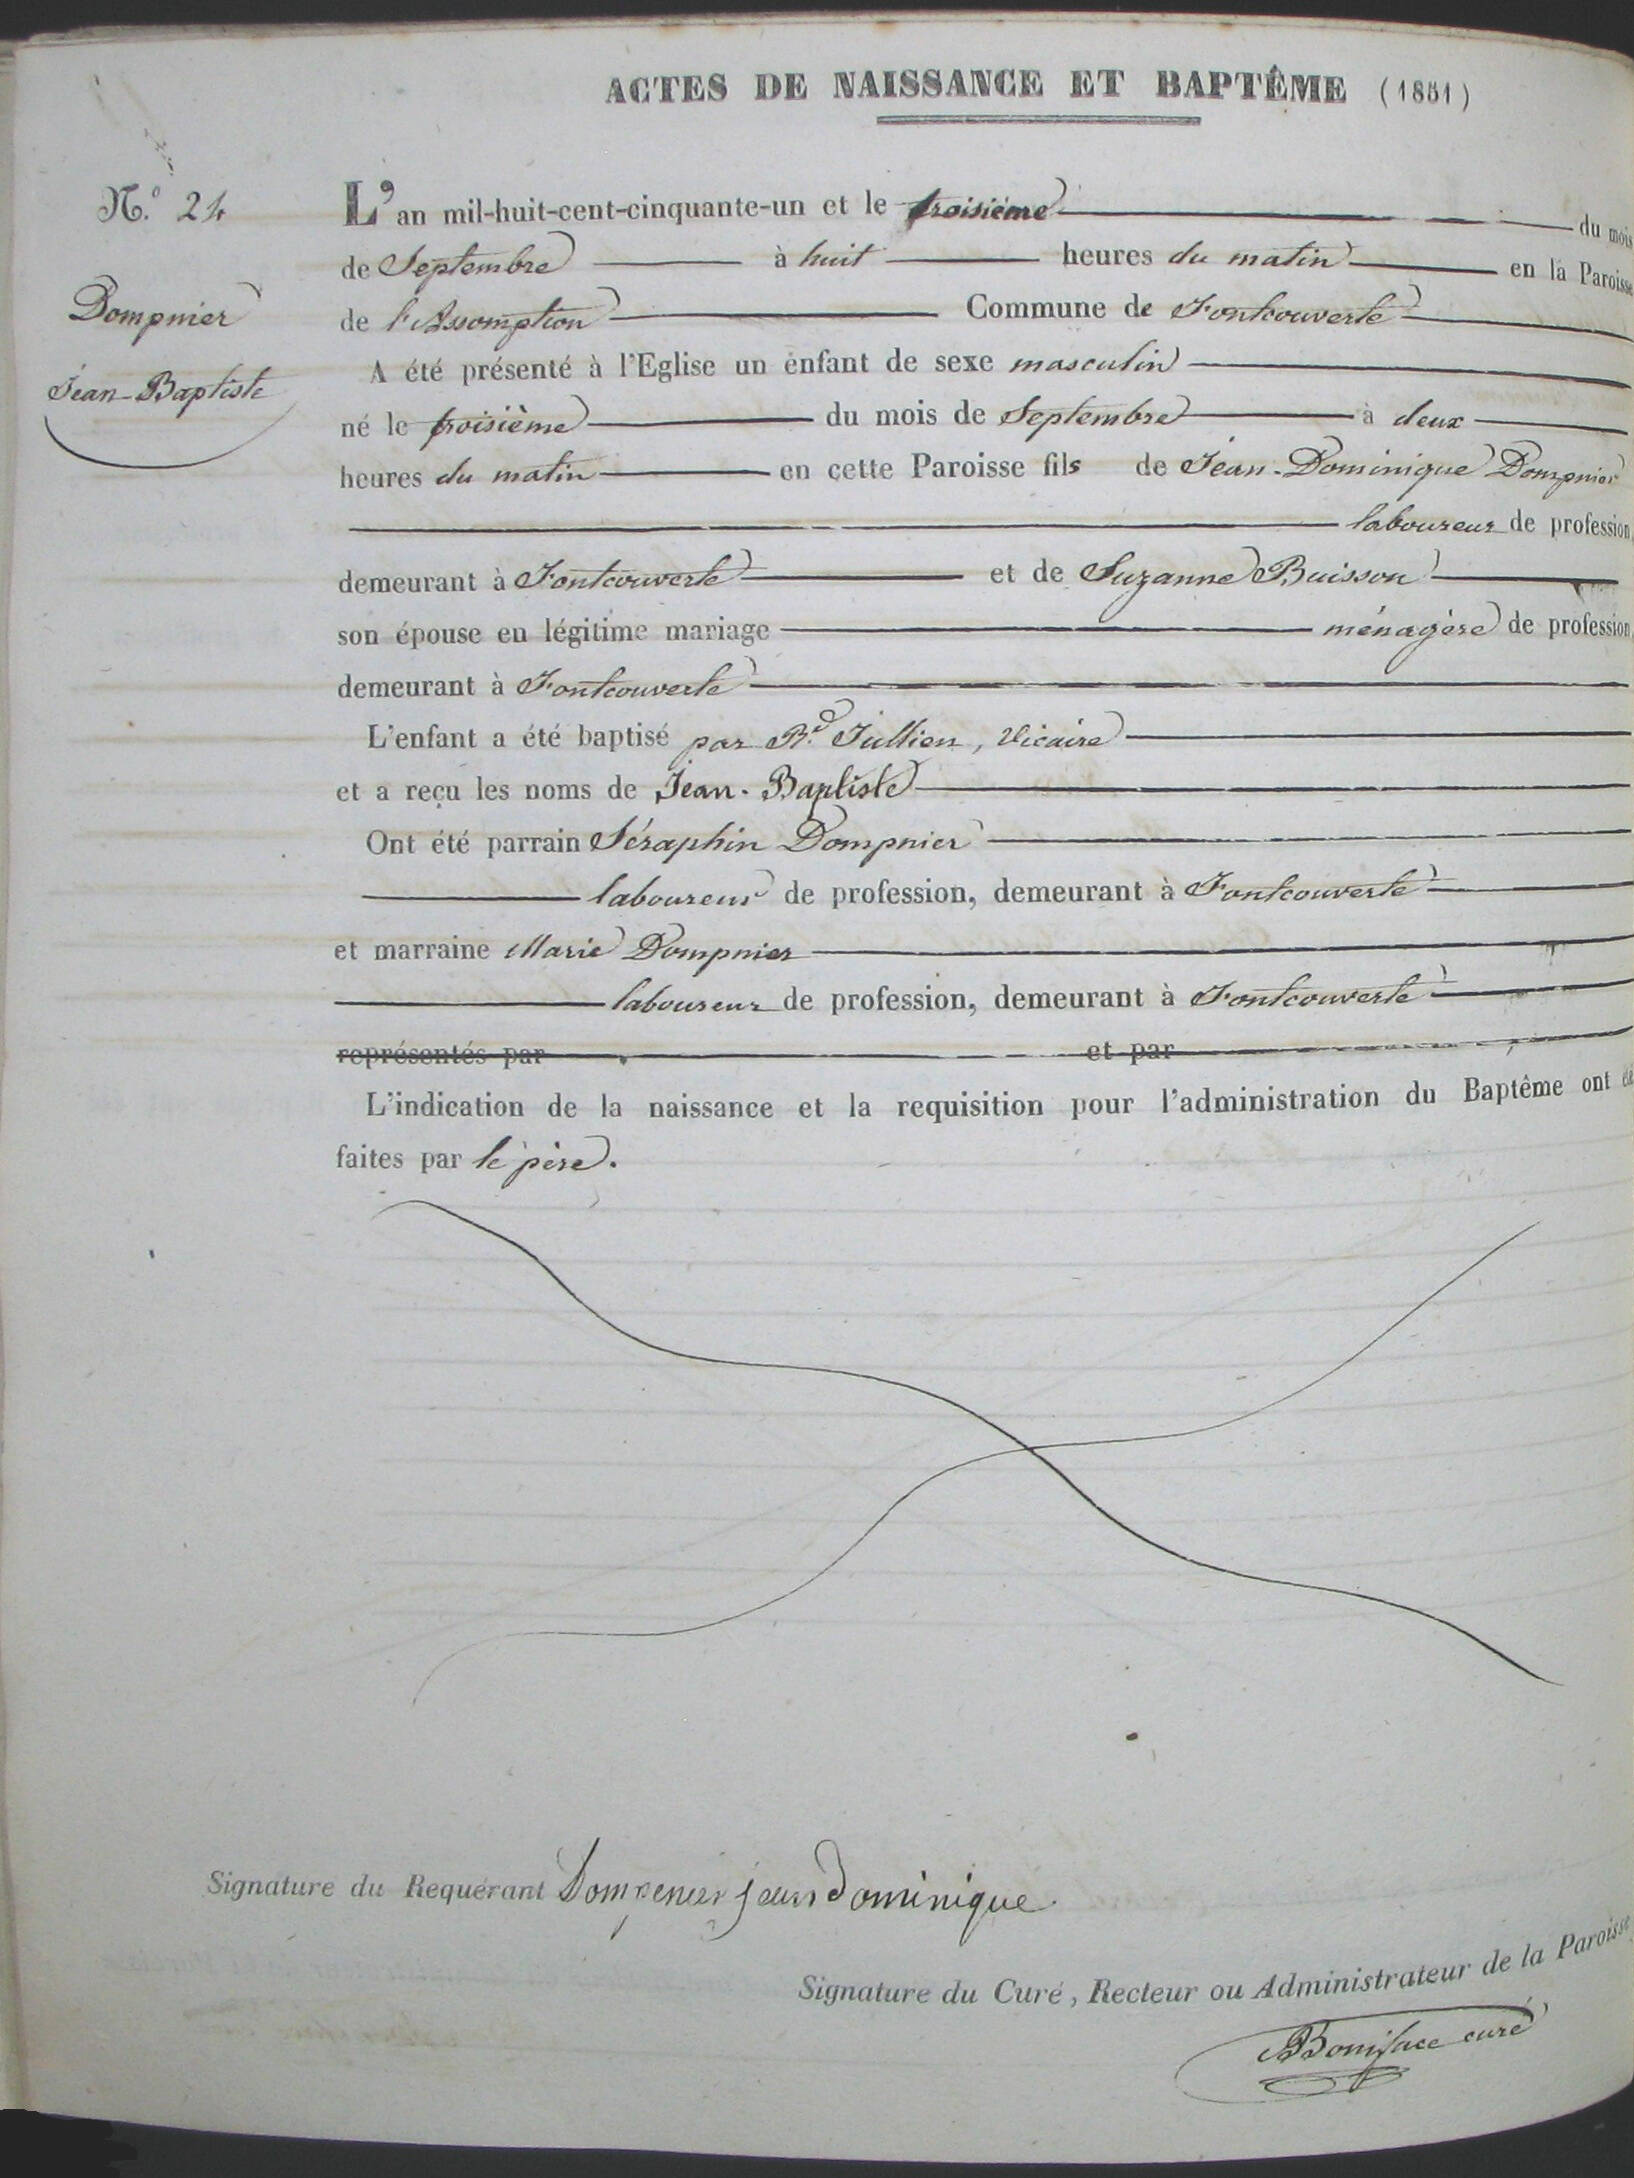 ACTES DE NAISSANCE ET BAPTÊME (1851)
N.º 24
Dompnier
Jean-Baptiste
L'an mil-huit-cent-cinquante-un et le troisième du mois
de Septembre à huit heures du matin en la Paroisse
de l'Assomption Commune de Fontcouverte
A été présenté à l'Eglise un enfant de sexe masculin
né le troisième du mois de Septembre à deux
heures du matin en cette Paroisse fils de Jean-Dominique Dompnier
laboureur de profession,
demeurant à Fontcouverte et de Suzanne Buisson
son épouse en légitime mariage ménagère de profession,
demeurant à Fontcouverte
L'enfant a été baptisé par R.d Jullien, Vicaire
et a reçu les noms de Jean-Baptiste
Ont été parrain Séraphin Dompnier
laboureur de profession, demeurant à Fontcouverte
et marraine Marie Dompnier
laboureur de profession, demeurant à Fontcouverte
représentés par et par
L'indication de la naissance et la requisition pour l'administration du Baptême ont été
faites par le père.
Signature du Requérant Dompenier jean Dominique
Signature du Curé, Recteur ou Administrateur de la Paroisse,
Boniface curé